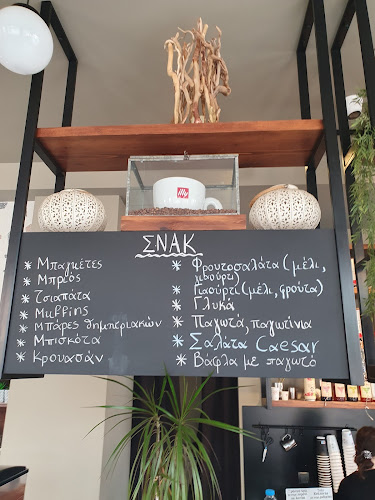 illy
ΣΝΑΚ
* Μπαγκέτες
* Μπριός
* Τσιαπάτα
* Muffins
* Μπάρες δημητριακών
* Μπισκότα
* Κρουασάν
* Φρουτοσαλάτα (μέλι, γιαούρτι)
* Γιαούρτι (μέλι, φρούτα)
* Γλυκά
* Παγωτά, παγωτίνια
* Σαλάτα Caesar
* Βάφλα με παγωτό